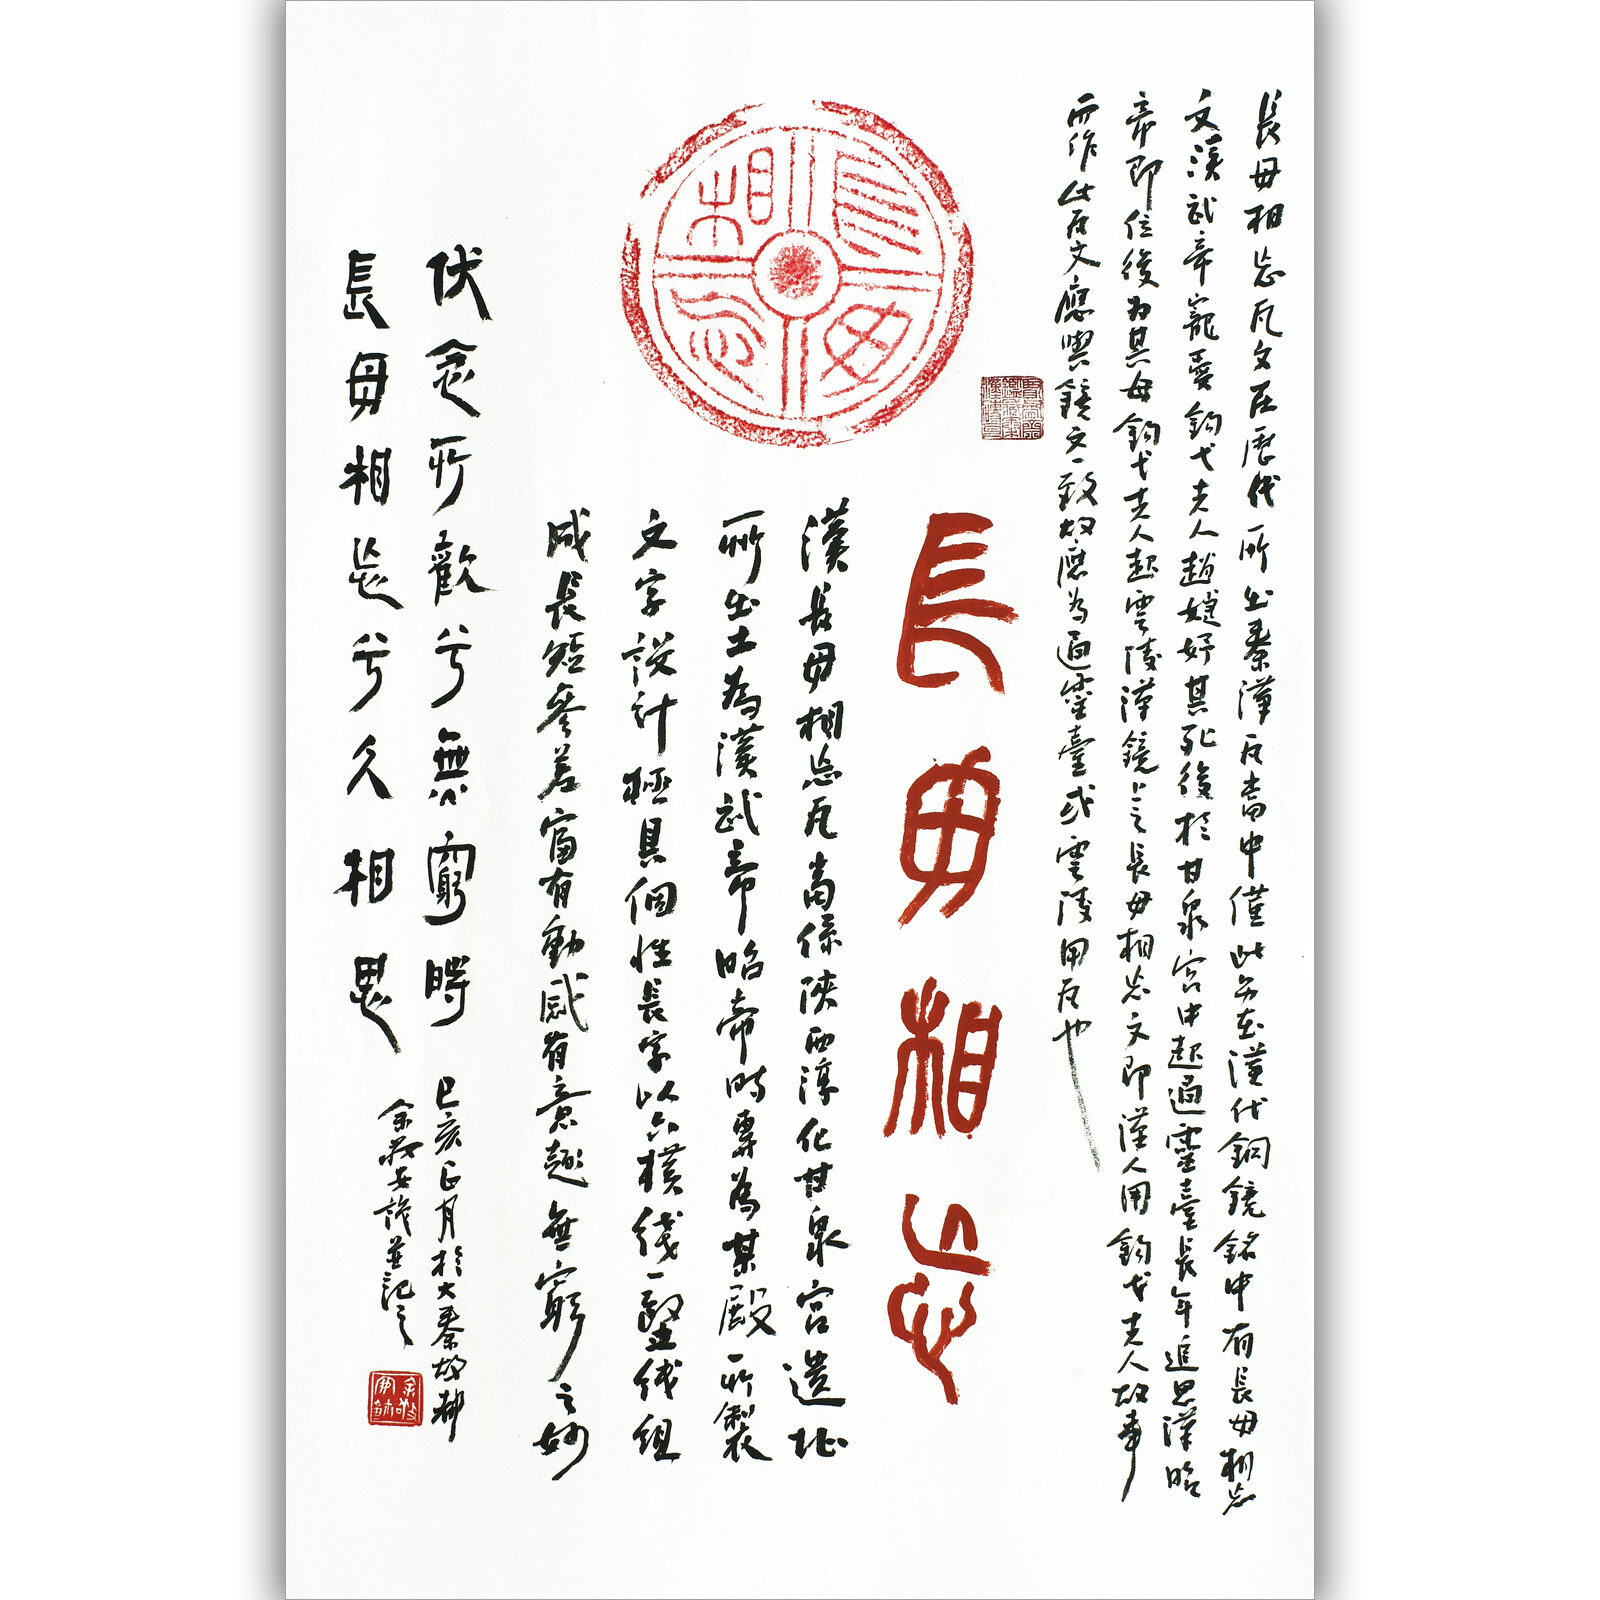 長毋相忘瓦文在歷代所出秦漢瓦當中僅此在漢代銅鏡銘中有長毋相忘
文漢武帝寵愛鈎弋夫人趙婕妤其死後於甘泉宮中起通靈臺長年追思漢昭
帝即位後為其母鈎弋夫人起雲陵漢鏡上之長毋相忘文即漢人用鈎弋夫人故事
而作此瓦文應與鏡文一致故應為通靈臺或雲陵用瓦也
長毋相忘
長毋相忘
漢長毋相忘瓦當係陝西淳化甘泉宮遺址
所出土為漢武帝昭帝時專為某殿所製
文字設計極具個性長字以六橫綫一竪綫組
成長短參差富有動感有意趣無窮之妙
伏念所歡兮無窮時
長毋相忘兮久相思
己亥正月於大秦故都
余並記之